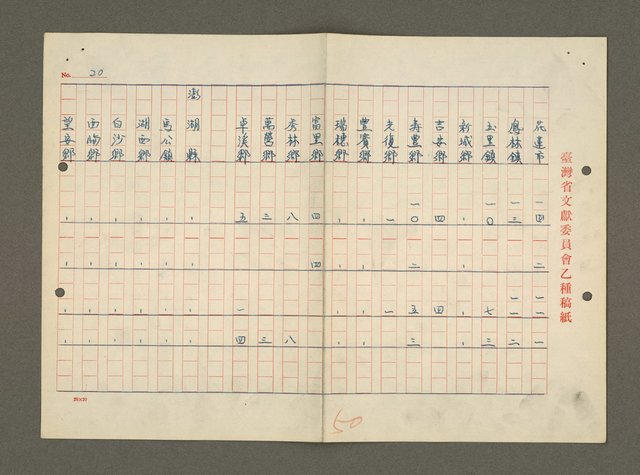 臺灣省文獻委員會乙種稿紙
No. 20
花蓮市 一四 二 一一 一
鳳林鎮 一三 、 一一 二
玉里鎮 一〇 、 七 三
新城鄉 、 、 、 、
吉安鄉 四 四
壽豐鄉 一〇 二 五 三
光復鄉 一 一
豐賓鄉 、 、 、 、
瑞穗鄉 、 、 、 、
富里鄉 四 四
秀林鄉 八 八
萬營鄉 三 三
卓溪鄉 五 一 四
澎湖縣 、 、 、 、
馬公鎮 、 、 、 、
湖西鄉 、 、 、 、
白沙鄉 、 、 、 、
西嶼鄉 、 、 、 、
望安鄉 、 、 、 、
20×20
50